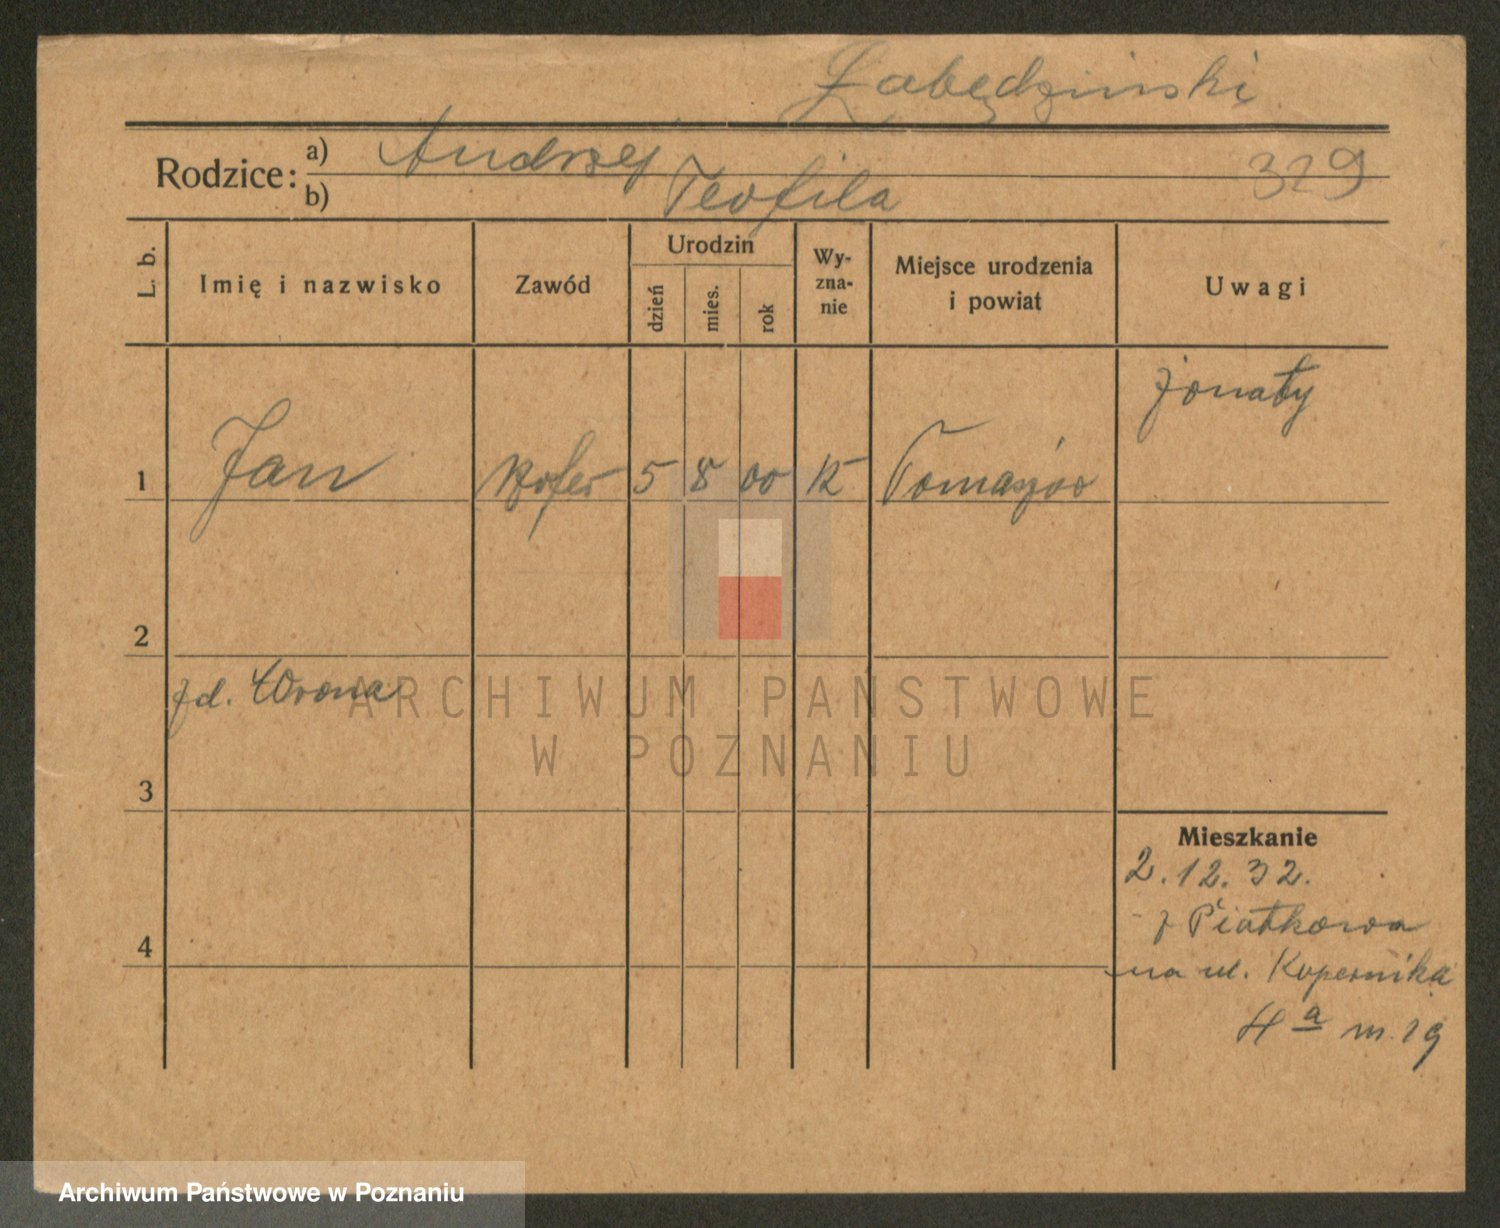 Łabędziński
Rodzice: a) Andrzej
b) Teofila
329
L. b.
Imię i nazwisko
Zawód
Urodzin
dzień
mies.
rok
Wy-
zna-
nie
Miejsce urodzenia
i powiat
Uwagi
żonaty
1 Jan szofer 5 8 00 K Tomaszów
2
zd. Wrona
3
4
Mieszkanie
2.12.32.
z Piątkowa
na ul. Kopernika
4a m. 19
ARCHIWUM PAŃSTWOWE
W POZNANIU
Archiwum Państwowe w Poznaniu